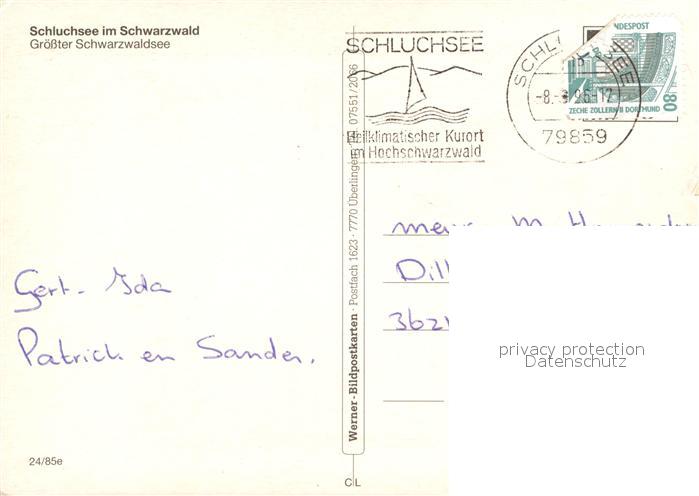 Schluchsee im Schwarzwald
Größter Schwarzwaldsee
SCHLUCHSEE
Heilklimatischer Kurort
im Hochschwarzwald
79859
ZECHE ZOLLERN II DORTMUND
80
Gert - Ida
Patrick en Sander.
24/85e
Werner-Bildpostkarten · Postfach 1623 · 7770 Überlingen · 07551/2066
C L
3621
privacy protection
Datenschutz